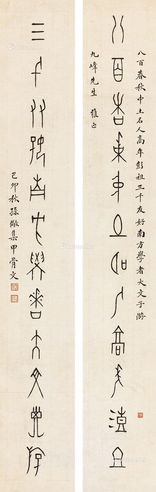 八百春秋中土名人高年彭祖三千友好南方學者大文子游
八百春秋中土名人高年彭祖
九峰先生 雅正
三千友好南方學者大文子游
己卯秋孫儆集甲骨文